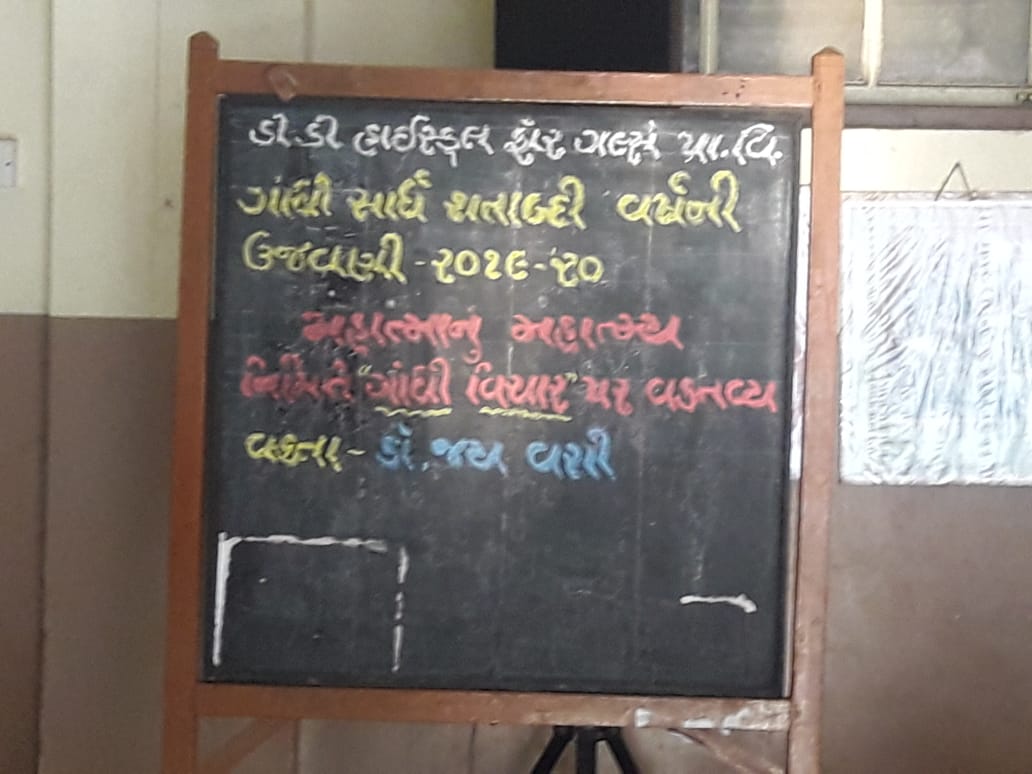 ડી.ડી હાઈસ્કૂલ ફૉર ગર્લ્સ પ્રા.વિ.
ગાંધી સાર્ધ શતાબ્દી વર્ષની
ઉજવાણી -૨૦૧૯-'૨૦
મહાત્માનું મહાત્મ્ય
નિમિતે "ગાંધી વિચાર" પર વક્તવ્ય
વક્તા - ડૉ. જય વશી